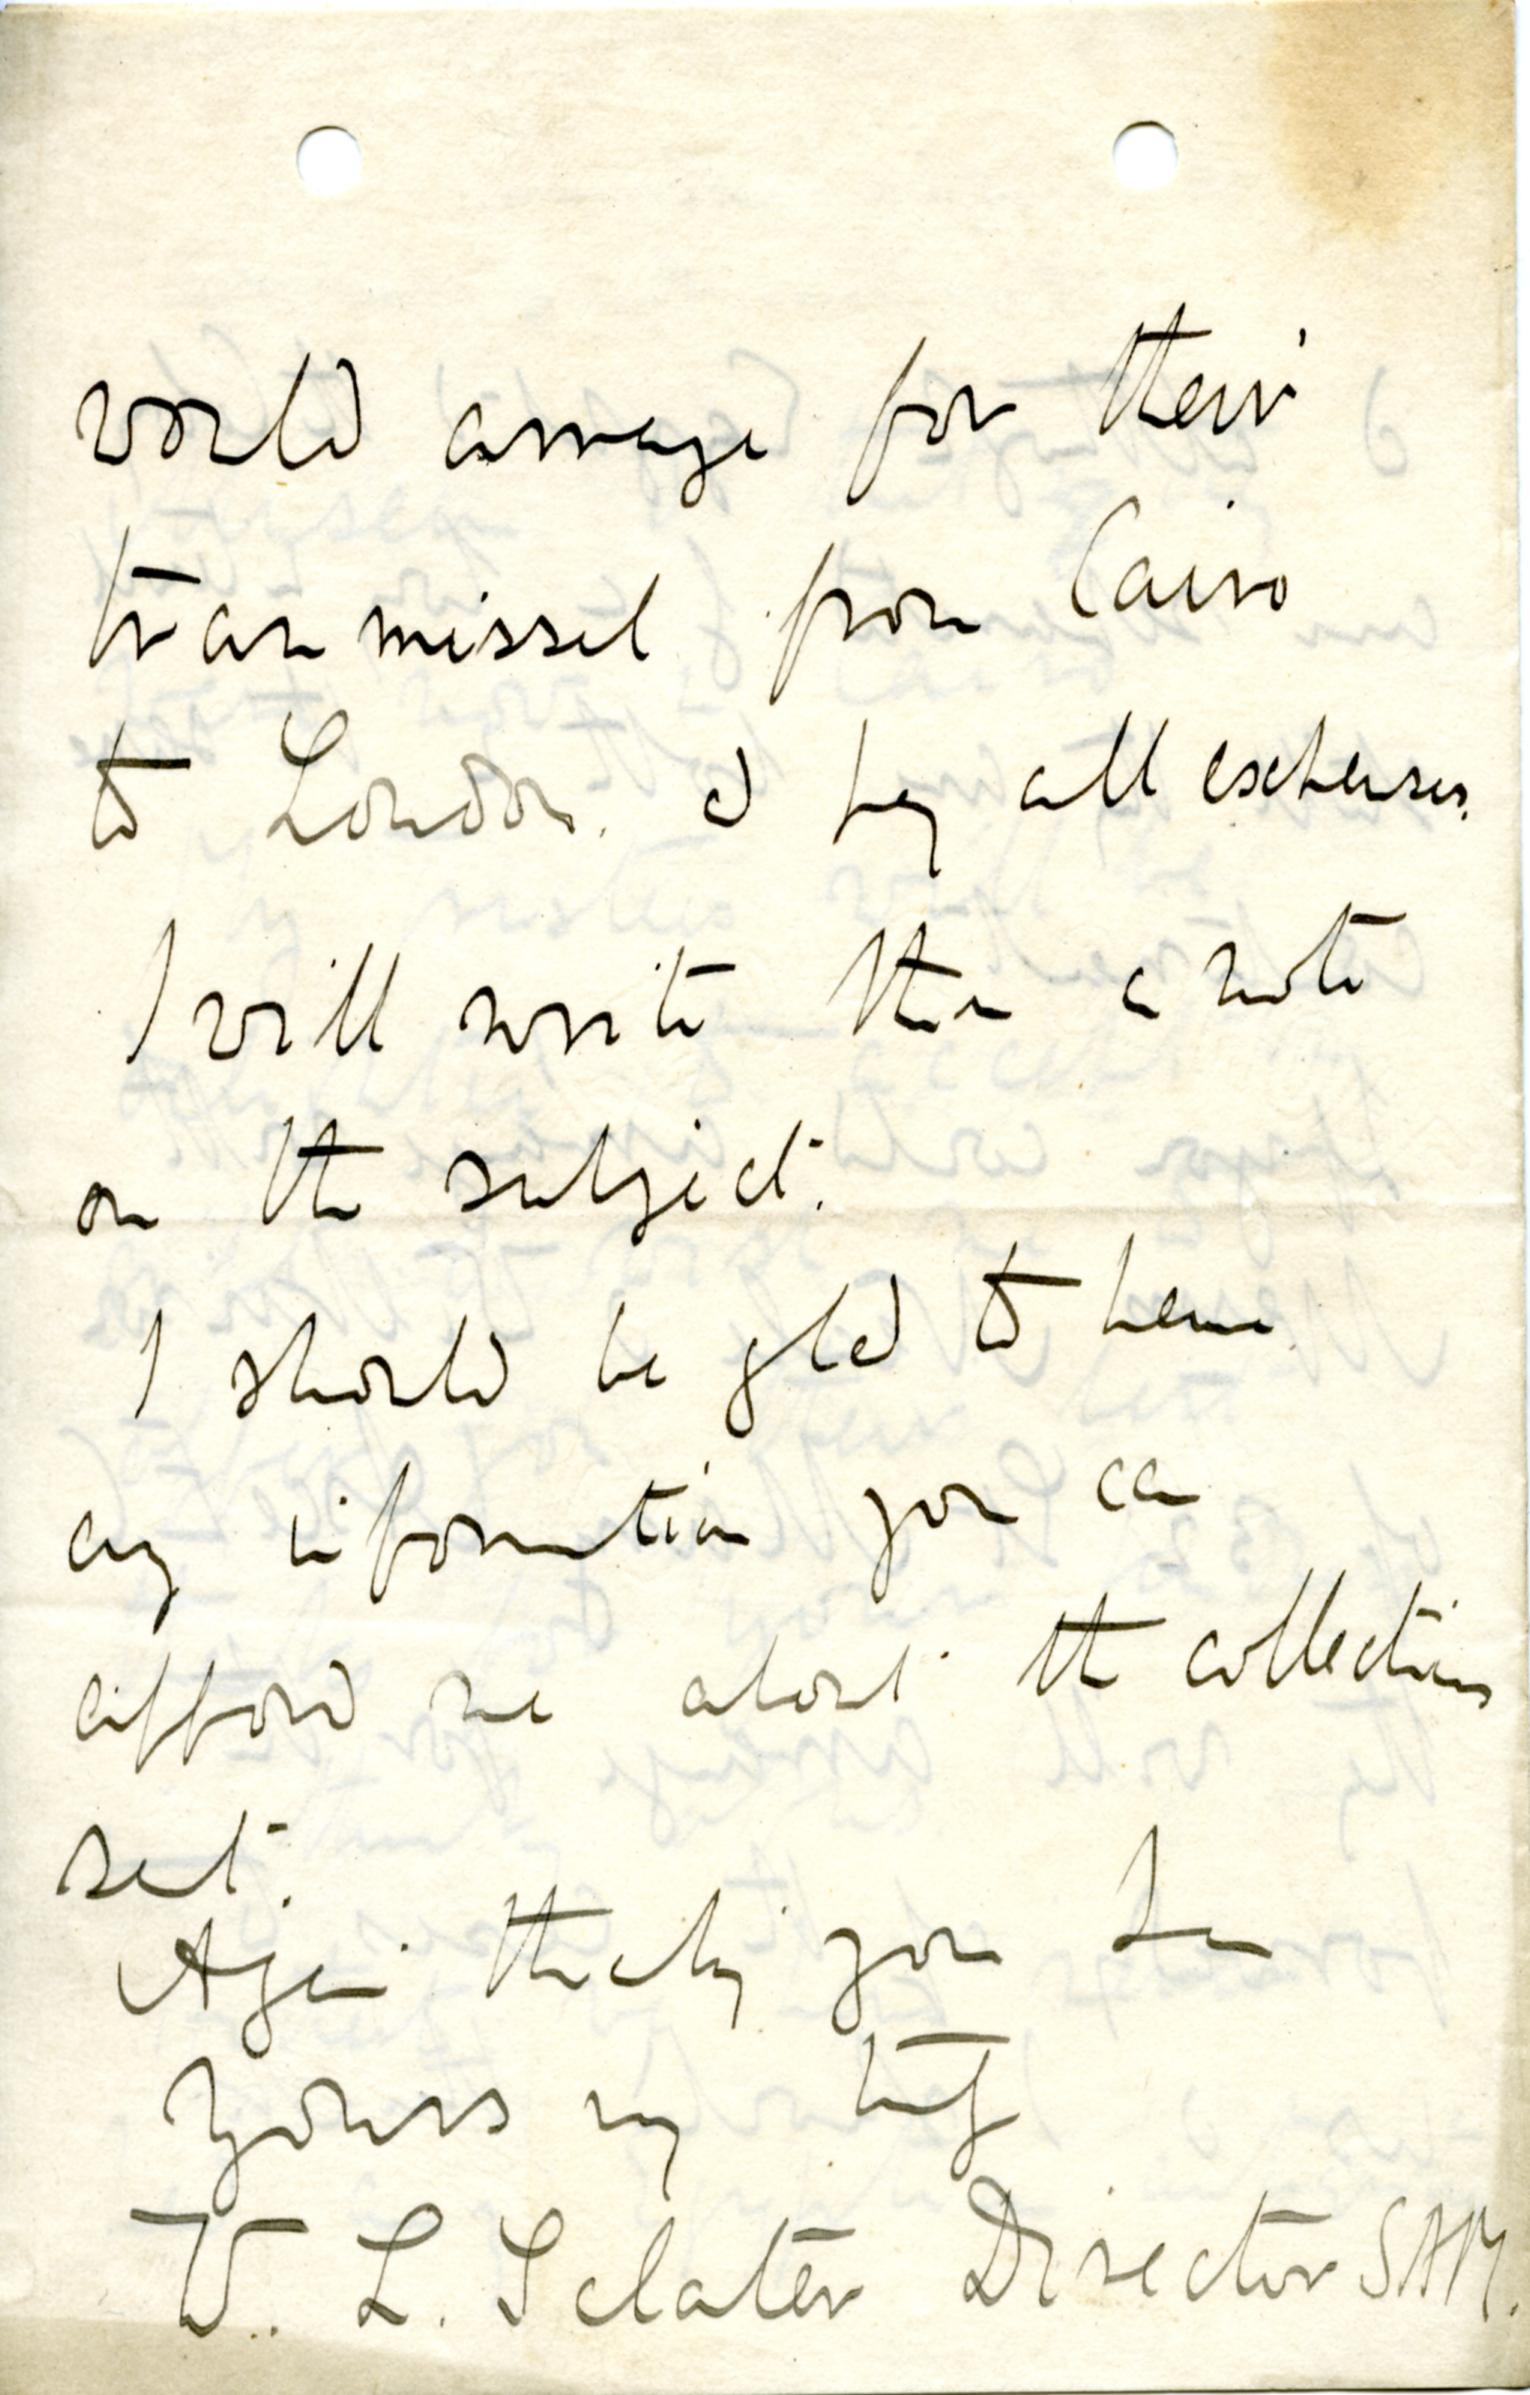 would arrange for their
transmissal from Cairo
to London. & pay all expenses.
I will write them a note
on the subject.
I should be glad to have
any information you can
afford me about the collections
sent.
Again thanking you I am
Yours very truly
W. L. Sclater Director S.A.M.